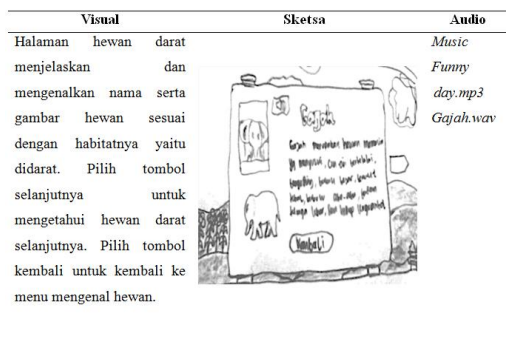 Visual Sketsa Audio
Halaman hewan darat
menjelaskan dan
mengenalkan nama serta
gambar hewan sesuai
dengan habitatnya yaitu
didarat. Pilih tombol
selanjutnya untuk
mengetahui hewan darat
selanjutnya. Pilih tombol
kembali untuk kembali ke
menu mengenal hewan.
Gajah
Gajah merupakan hewan mamalia
kembali
Music
Funny
day.mp3
Gajah.wav